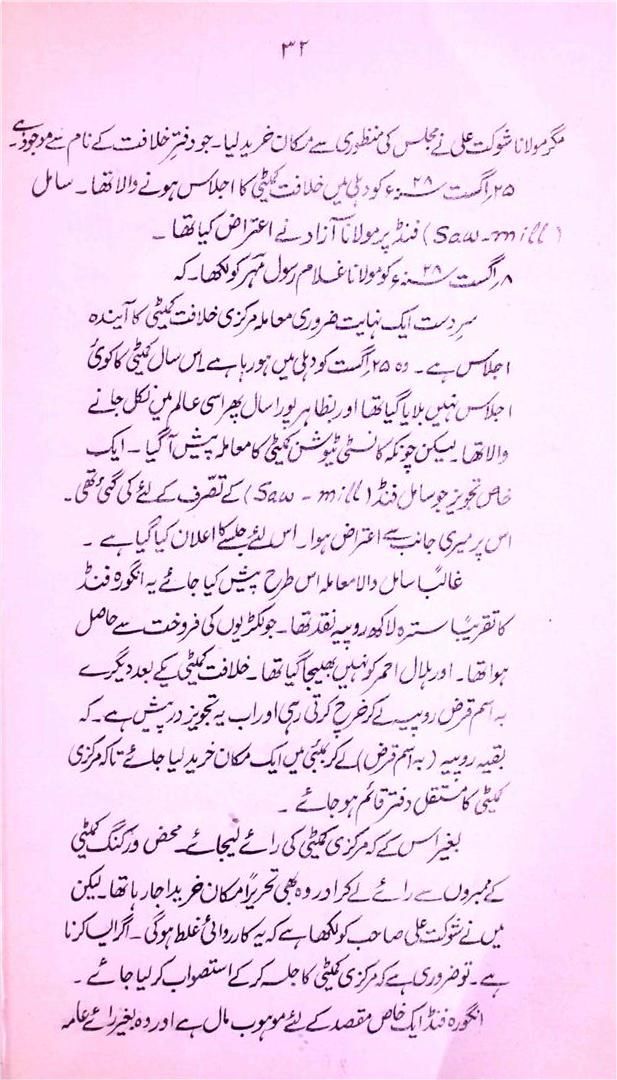 ۳۲
مگر مولانا شوکت علی نے مجلس کی منظوری سے مکان خرید لیا۔ جو دفترِ خلافت کے نام سے موجود ہے۔
۲۵ اگست ۲۸ء کو دہلی میں خلافت کمیٹی کا اجلاس ہونے والا تھا۔ سامل
(Saw-mill) فنڈ پر مولانا آزاد نے اعتراض کیا تھا۔
۸ اگست ۲۸ء کو مولانا غلام رسول مہر کو لکھا۔ کہ
سرِ دست ایک نہایت ضروری معاملہ مرکزی خلافت کمیٹی کا آیندہ
اجلاس ہے۔ وہ ۲۵ اگست کو دہلی میں ہو رہا ہے۔ اس سال کمیٹی کا کوئی
اجلاس نہیں بلایا گیا تھا اور بظاہر پورا سال پھر اسی عالم میں نکل جانے
والا تھا۔ لیکن چونکہ کانسٹی ٹیوشن کمیٹی کا معاملہ پیش آ گیا۔ ایک
خاص تجویز جو سامل فنڈ (Saw - mill) کے تصرّف کے لئے کی گئی تھی۔
اس پر میری جانب سے اعتراض ہوا۔ اس لئے جلسے کا اعلان کیا گیا ہے۔
غالباً سامل والا معاملہ اس طرح پیش کیا جائے یہ انگورہ فنڈ
کا تقریباً سترہ لاکھ روپیہ نقد تھا۔ جو لکڑیوں کی فروخت سے حاصل
ہوا تھا۔ اور ہلال احمر کو نہیں بھیجا گیا تھا۔ خلافت کمیٹی یکے بعد دیگرے
بہ اسم قرض روپیہ لے کر خرچ کرتی رہی اور اب یہ تجویز درپیش ہے۔ کہ
بقیہ روپیہ (بہ اسم قرض) لے کر بمبئی میں ایک مکان خرید لیا جائے تاکہ مرکزی
کمیٹی کا مستقل دفتر قائم ہو جائے۔
بغیر اس کے کہ مرکزی کمیٹی کی رائے لیجائے۔ محض ورکنگ کمیٹی
کے ممبروں سے رائے لے کر اور وہ بھی تحریراً مکان خریدا جا رہا تھا۔ لیکن
میں نے شوکت علی صاحب کو لکھا ہے کہ یہ کارروائی غلط ہوگی۔ اگر ایسا کرنا
ہے۔ تو ضروری ہے کہ مرکزی کمیٹی کا جلسہ کر کے استصواب کر لیا جائے۔
انگورہ فنڈ ایک خاص مقصد کے لئے موہوب مال ہے اور وہ بغیر رائے عامہ